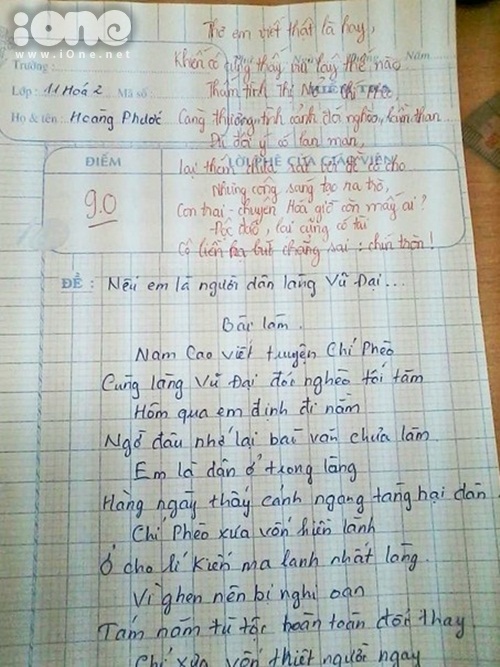 iOne
www.iOne.net
Thơ em viết thật là hay,
Khiến cô cũng thấy vui lây thế nào
Năm
Trường :
Thấm tình Thị Nở, Chí Phèo,
Lớp : 11 Hoá 2 Mã số :
Càng thương tình cảnh đói nghèo, lầm than
Họ & tên : Hoàng Phước
Dù đôi ý có lan man,
ĐIỂM
LỜI PHÊ CỦA GIÁO VIÊN
lại thêm chưa sát
cô cho
9.0
Nhưng công sáng tạo ra trò,
Con trai - chuyên Hoá giờ còn mấy ai?
Độc đáo, lại cũng có tài
Cô liền hạ bút chẳng sai : chín tròn!
ĐỀ : Nếu em là người dân làng Vũ Đại...
Bài làm.
Nam Cao viết truyện Chí Phèo
Cùng làng Vũ Đại đói nghèo tối tăm
Hôm qua em định đi nằm
Ngờ đâu nhớ lại bài văn chưa làm
Em là dân ở trong làng
Hàng ngày thấy cảnh ngang tàng hại dân
Chí Phèo xưa vốn hiền lành
Ở cho lí Kiến ma lanh nhất làng.
Vì ghen nên bị nghi oan
Tám năm tù tội hoàn toàn đổi thay
Chí xưa vốn thiệt người ngay